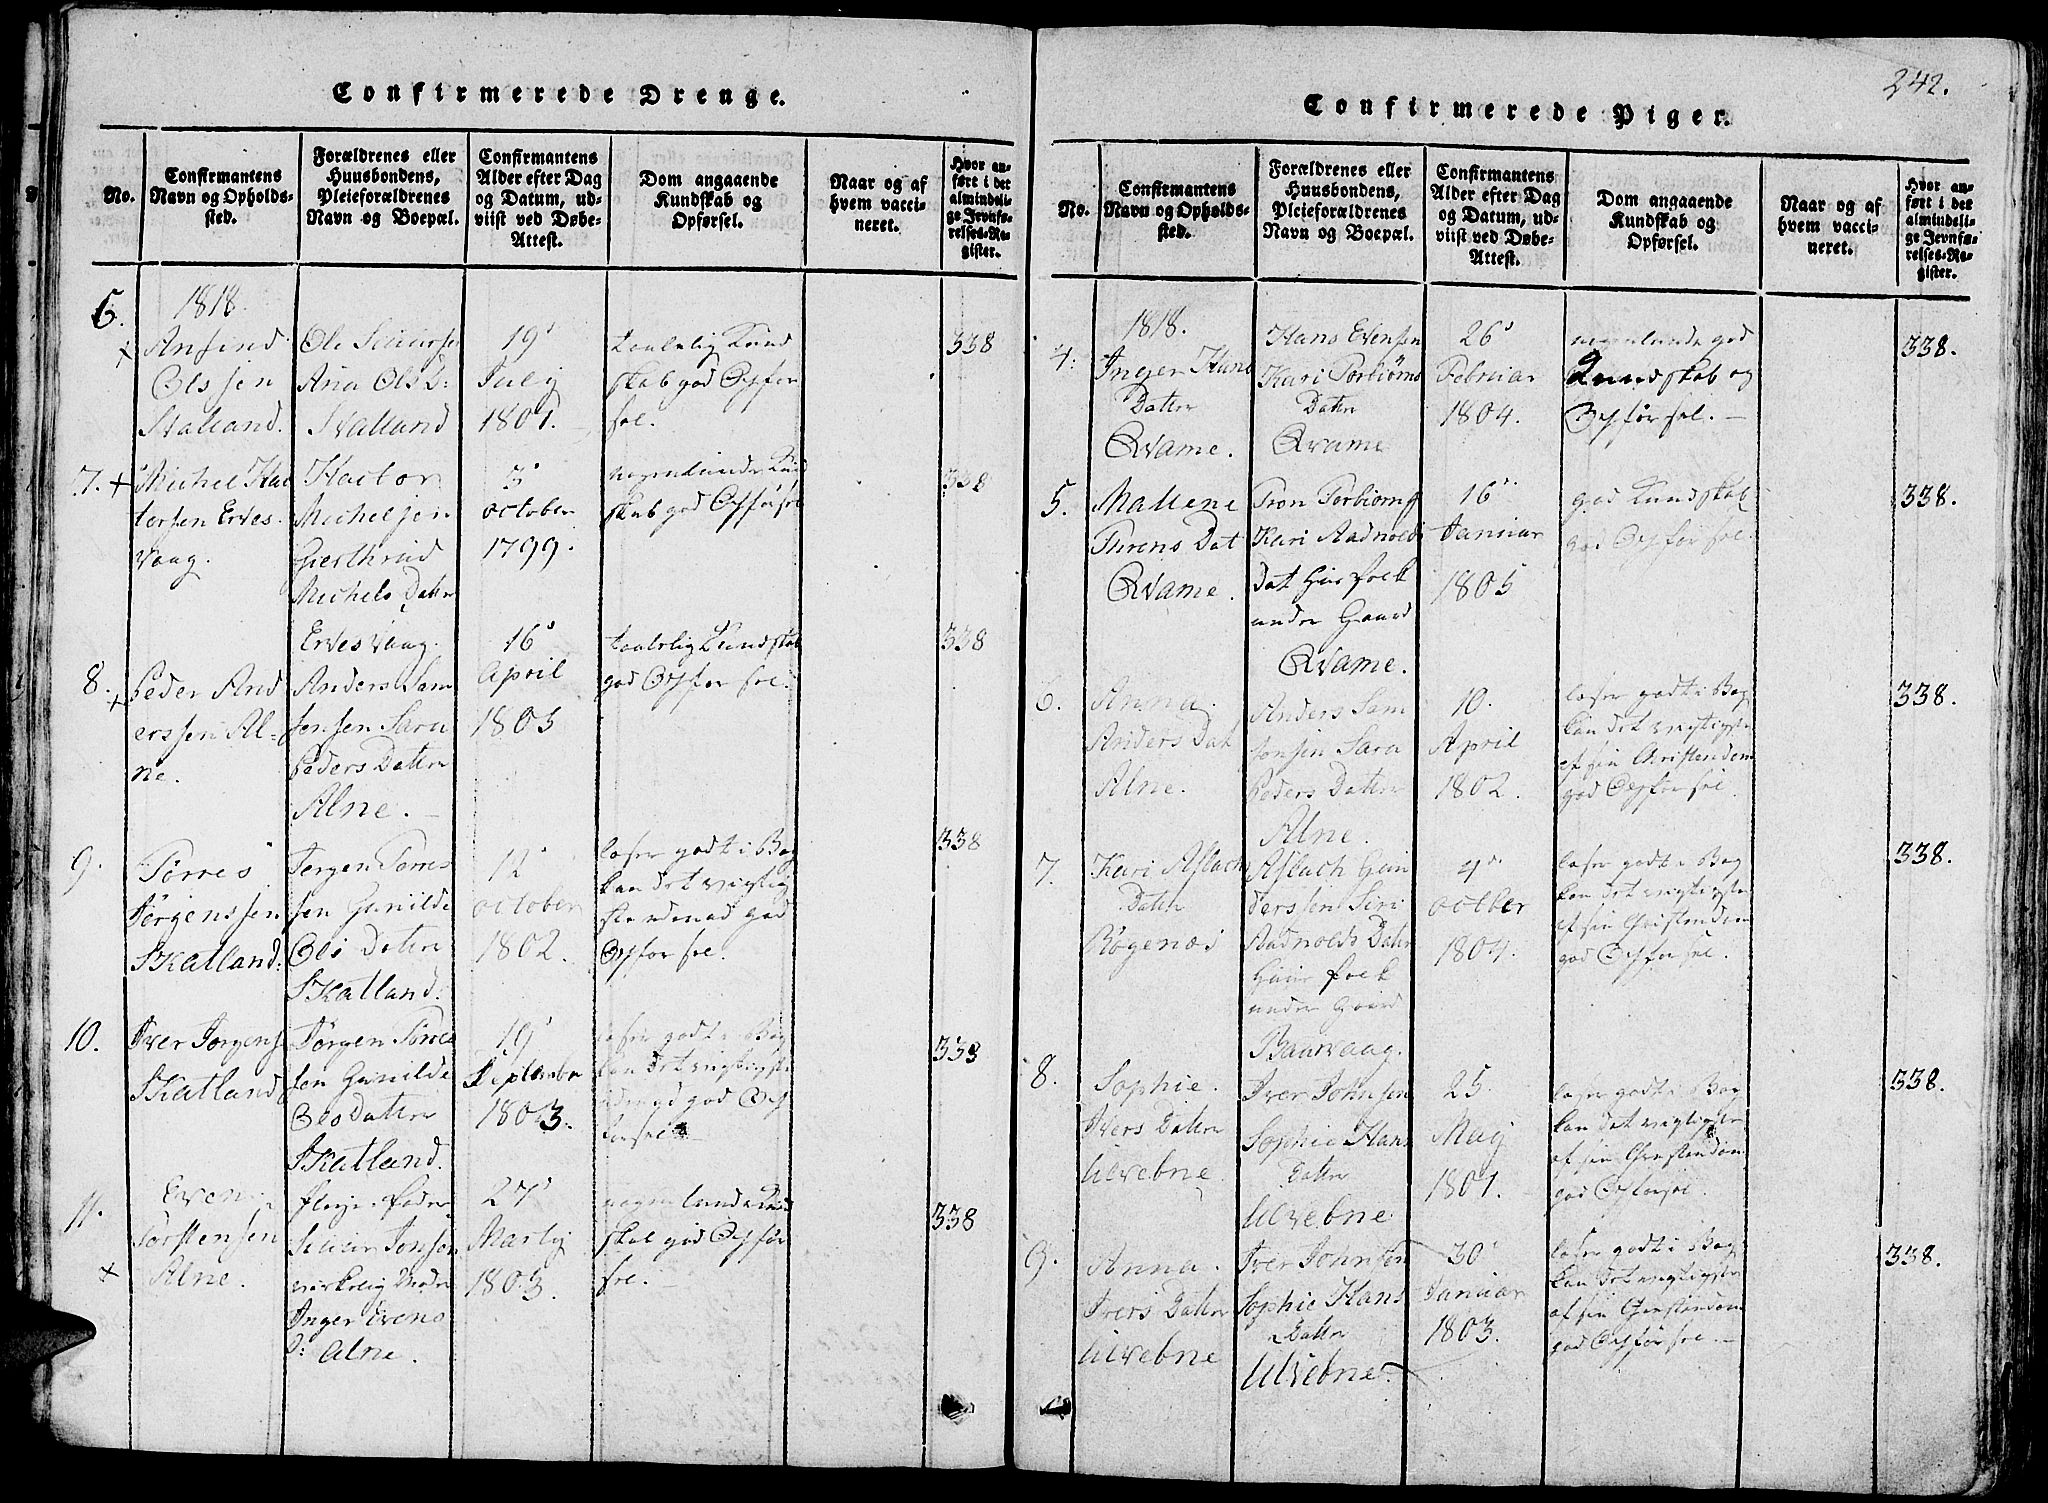 242.
Confirmerede Drenge.
No.
Confirmantens
Navn og Opholds-
sted.
Forældrenes eller
Huusbondens,
Pleieforældrenes
Navn og Boepæl.
Confirmantens
Alder efter Dag
og Datum, ud-
viist ved Døbe-
Attest.
Dom angaaende
Kundskab og
Opførsel.
Naar og af
hvem vacci-
neret.
Hvor an-
ført i det
almindeli-
ge Jevnfø-
relses-Re-
gister.
6.
1818.
Ansind
Olssen
Stalland.
Ole
Ana Ols D:
Stalland
19
July
1801.
taalelig Kund
skab god Opfør
sel.
338
7. +
Michel Hac
torsen Erves
vaag.
Hactor
Michelsen
Gierthrud
Michels Datter
Ervesvaag.
3
october
1799.
nogenlunde Kund
skab god Opførsel
338
8. +
Peder And
erssen Al=
ne.
Anders Sam
sonsen Sara
Peders Datter
Alne.
16
April
1805
taalelig Kundskab
god Opførsel.
338
9.
Torres
Jørgenssen
Skatland.
Jørgen Torres
sen Gunilde
Ols Datter
Skatland.
12
october
1802.
læser godt i Bog
kan det vigtig
ste udenad god
Opførsel.
338
10.
Iver Jørgens
Skatland
Jørgen Torres
sen Gunilde
Ols Datter
Skatland.
19
September
1803.
læser godt i Bog
kan det vigtigste
udenad god Op
førsel
338
11. +
Even
Torstensen
Alne.
Pleye-fader
Jonsen
virkelig Moder
Inger Evens
D: Alne.
27
Martij
1803.
nogenlunde Kund
skab god Opfør
sel.
338
Confirmerede Piger.
No.
Confirmantens
Navn og Opholds-
sted.
Forældrenes eller
Huusbondens,
Pleieforældrenes
Navn og Boepæl.
Confirmantens
Alder efter Dag
og Datum, ud-
viist ved Døbe-
Attest.
Dom angaaende
Kundskab og
Opførsel.
Naar og af
hvem vacci-
neret.
Hvor an-
ført i det
almindeli-
ge Jevnfø-
relses-Re-
gister.
4.
1818.
Inger Hans
Datter
Qvame.
Hans Evensen
Kari Torbiørns
Datter
Qvame
26
Februar
1804.
nogenlunde god
Kundskab og
Opførsel.
338.
5.
Mallene
Threns Dat
Qvame.
Tron Torbiørns
Kari Aadnolds
Dat Huusfolk
under Gaard
Qvame.
16
Januar
1805
god Kundskab
god Opførsel.
338.
6.
Anna
Anders Dat
Alne.
Anders Sam
sonsen Sara
Peders Datter
Alne.
10.
April
1802.
læser godt i Bog
kan det vigtigste
af sin Christendom
god Opførsel.
338.
7.
Kari Aslach
Datter
Røgenæs
Aslach Gun
derssen Siri
Aadnolds Datter
Huusfolk
under Gaard
Baarvaag.
4
octber
1804.
læser godt i Bog
kan det vigtigste
af sin Christendom
god Opførsel.
338.
8.
Sophie
Ivers Datter
Ulvebne
Iver Johnsen
Sophie Hans
Datter
Ulvebne
25.
May
1801.
læser godt i Bog
kan det vigtigste
af sin Christendom
god Opførsel.
338.
9.
Anna.
Ivers Datter
Ulvebne
Iver Johnsen
Sophie Hans
Datter
Ulvebne.
30
Januar
1803.
læser godt i Bog
kan det vigtigste
af sin Christendom
god Opførsel.
338.